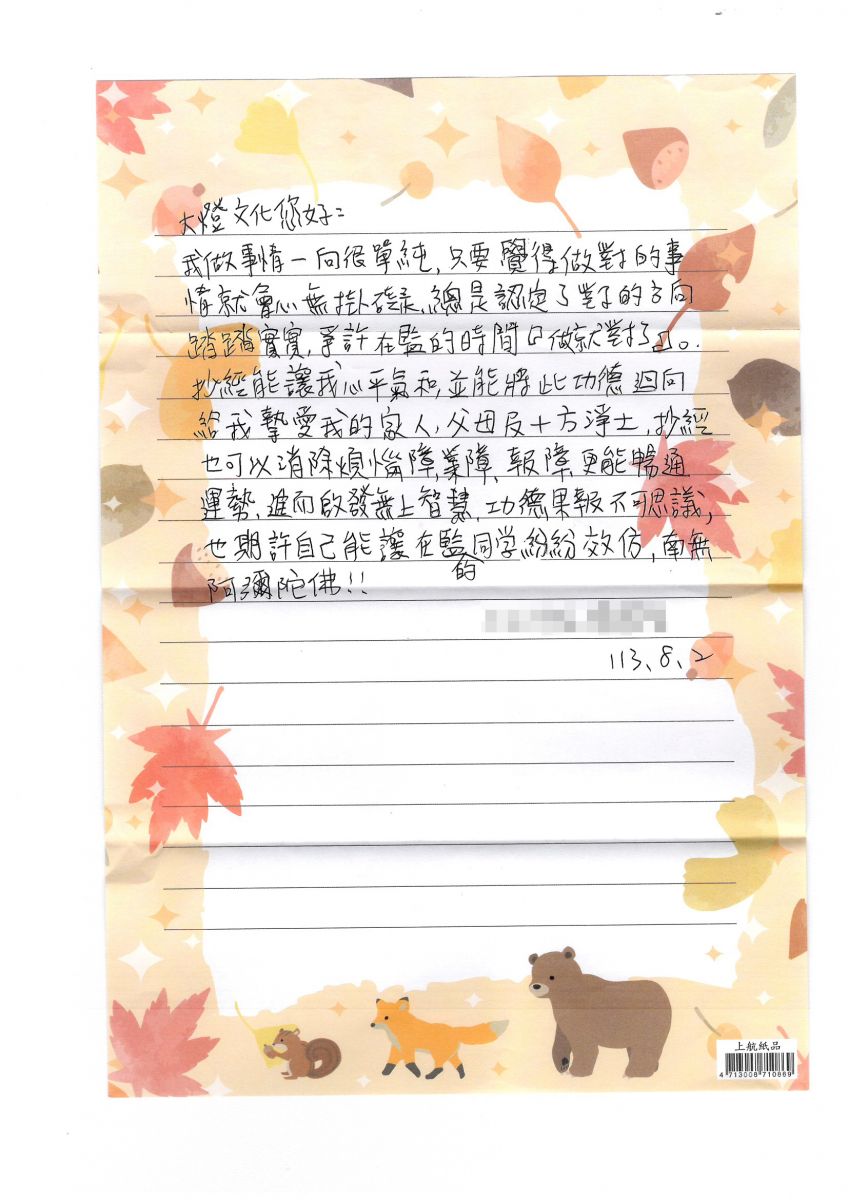 大燈文化您好：
我做事情一向很單純，只要覺得做對的事
情就會心無掛礙，總是認定了對的方向
踏踏實實，爭許在監的時間只做就對了。
抄經能讓我心平氣和，並能將此功德迴向
給我摯愛我的家人，父母及十方淨土，抄經
也可以消除煩惱障，業障、報障，更能暢通
運勢，進而啟發無上智慧，功德果報不可思議，
也期許自己能讓在監的同学紛紛效仿，南無
阿彌陀佛!!
113、8、2
上航紙品
4 713008 710869